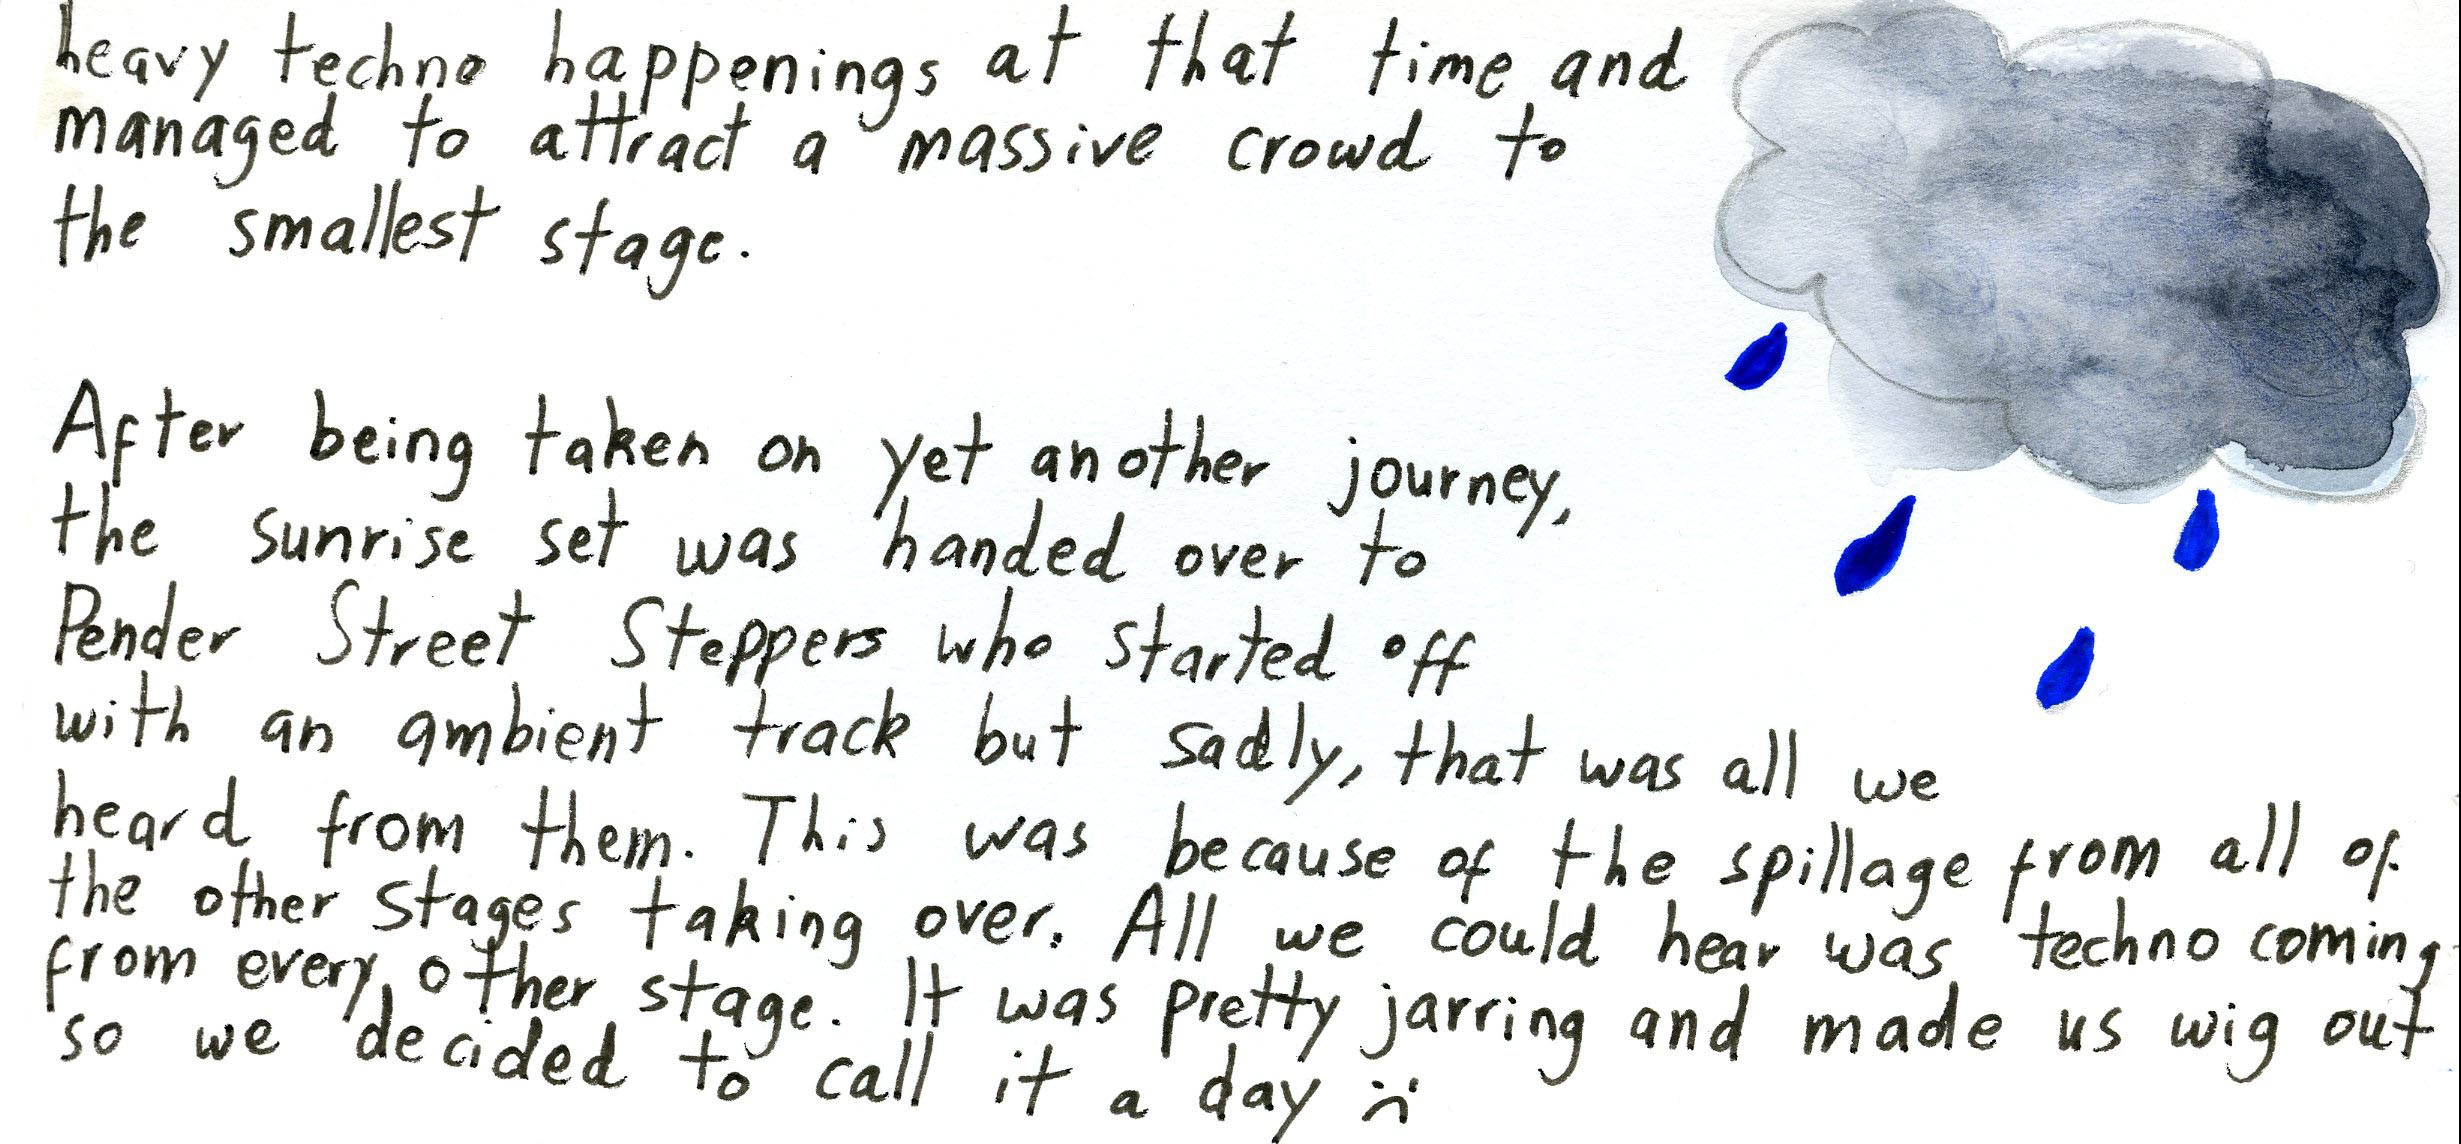 heavy techno happenings at that time and
managed to attract a massive crowd to
the smallest stage.
After being taken on yet another journey,
the sunrise set was handed over to
Pender Street Steppers who started off
with an ambient track but sadly, that was all we
heard from them. This was because of the spillage from all of
the other stages taking over. All we could hear was techno coming
from every other stage. It was pretty jarring and made us wig out
so we decided to call it a day :(